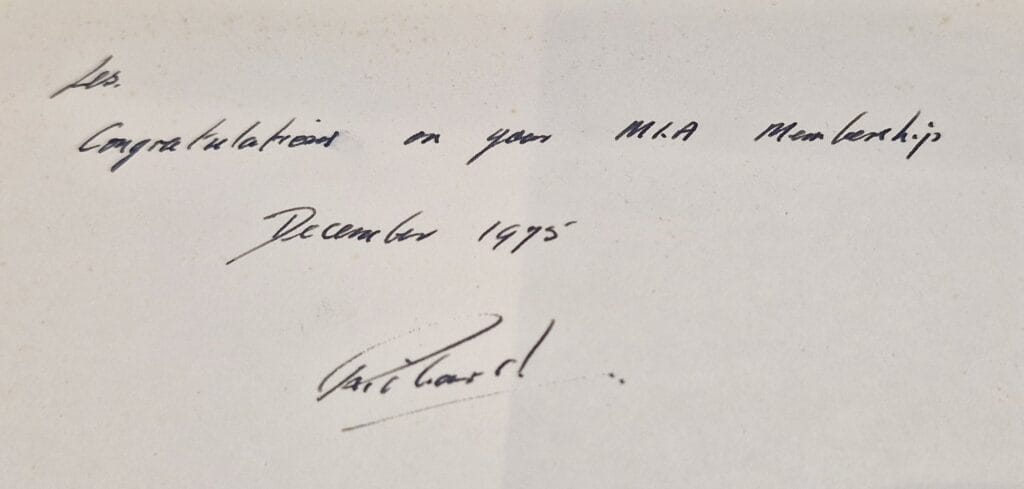 Les.
Congratulations on your M.I.A Membership
December 1975